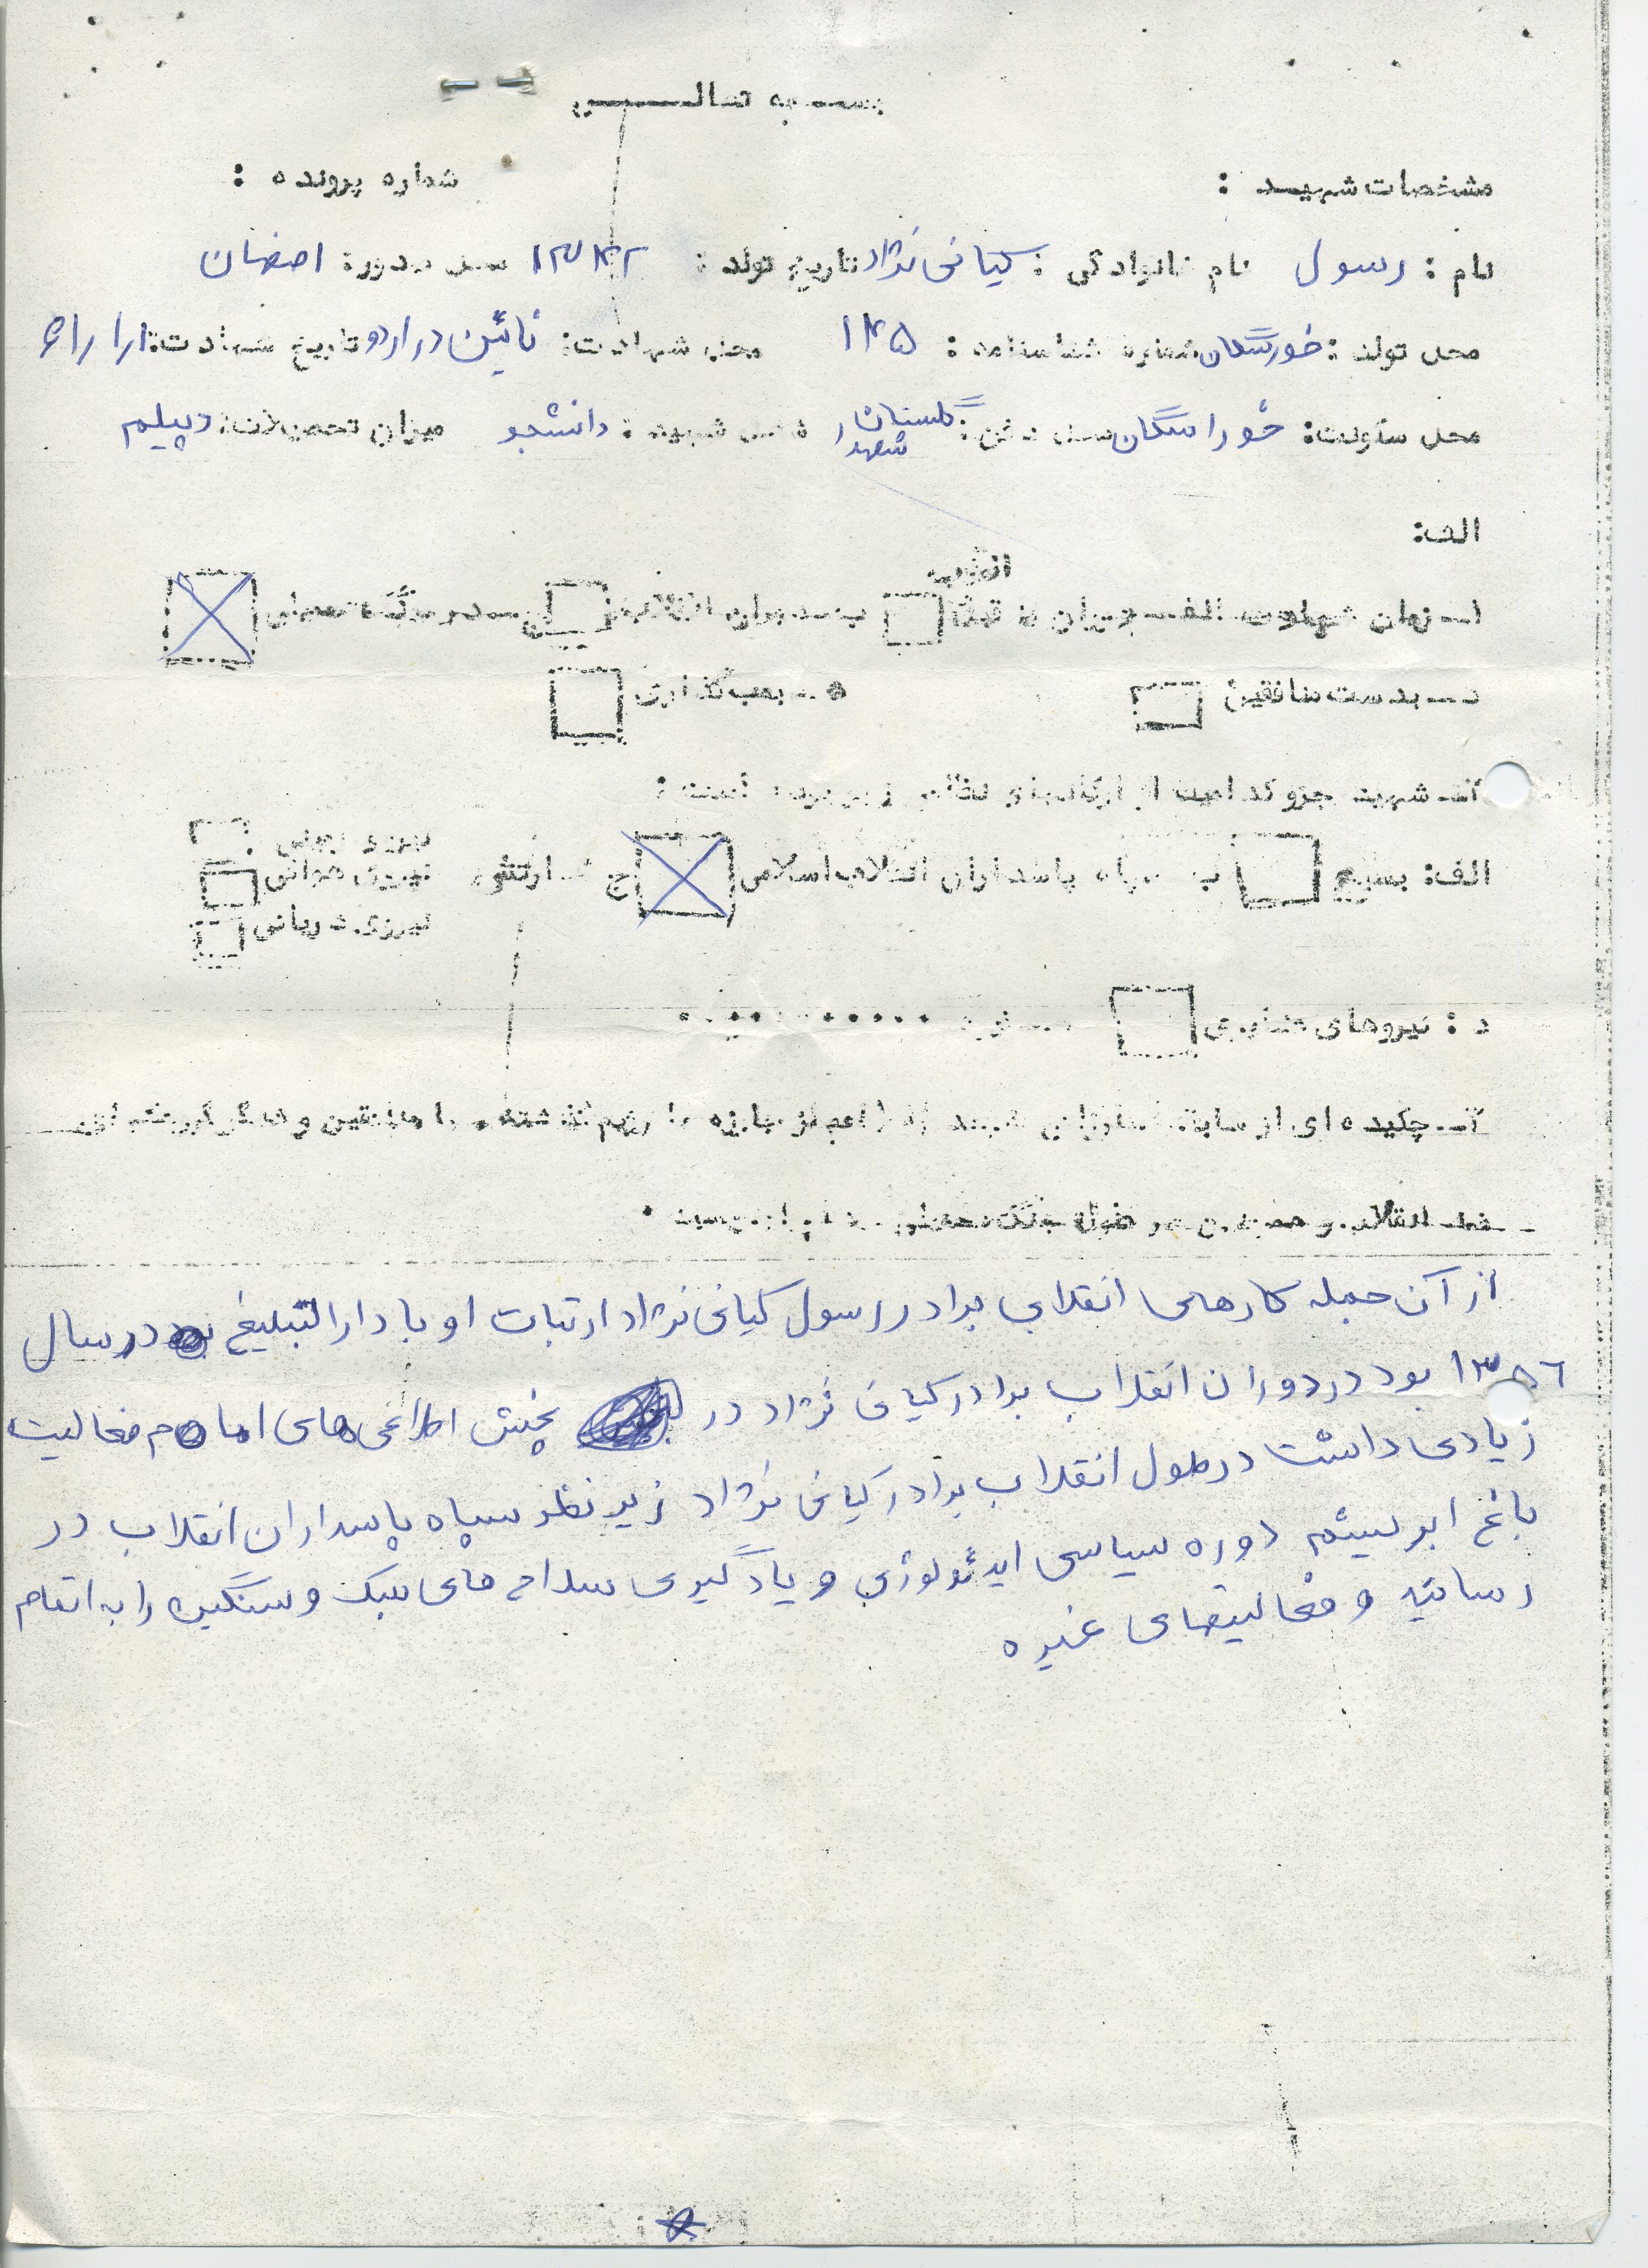 بسمه تعالی
مشخصات شهید : شماره پرونده :
نام : رسول نام خانوادگی : کیانی نژاد تاریخ تولد : ۱۳۴۲ محل صدور: اصفهان
محل تولد : خوراسگان شماره شناسنامه : ۱۴۵ محل شهادت: نائین در اردو تاریخ شهادت:
محل سکونت: خوراسگان محل دفن: گلستان شهدا شغل شهید : دانشجو میزان تحصیلات: دیپلم
الف:
۱ـ زمان شهادت الف ـ جریان قبل انقلاب ب ـ جریان انقلاب ج ـ در جنگ تحمیلی
د ـ بدست منافقین ه ـ بمب گذاری
۲ـ شهید جزو کدام از ارگانهای نظامی زیر بوده است :
الف: بسیج ب سپاه پاسداران انقلاب اسلامی ج : ارتش نیروی زمینی
نیروی هوائی
نیروی دریائی
د : نیروهای
۳ـ چکیده ای از سابقه مبارزاتی شهید را ( اعم از مبارزه با رژیم گذشته ، با منافقین و دیگر گروهکهای
ضد انقلاب و همچنین در طول جنگ تحمیلی
از آن جمله کارهای انقلابی برادر رسول کیانی نژاد ارتبات او با دارالتبلیغ در سال
۱۳۵۶ بود در دوران انقلاب برادر کیانی نژاد در پخش اطلاعی های امام فعالیت
زیادی داشت در طول انقلاب برادر کیانی نژاد زیر نظر سپاه پاسداران انقلاب در
باغ ابریشم دوره سیاسی ایدئولوژی و یادگیری سلاح های سبک و سنگین را به اتمام
رسانید و فعالیتهای غیره